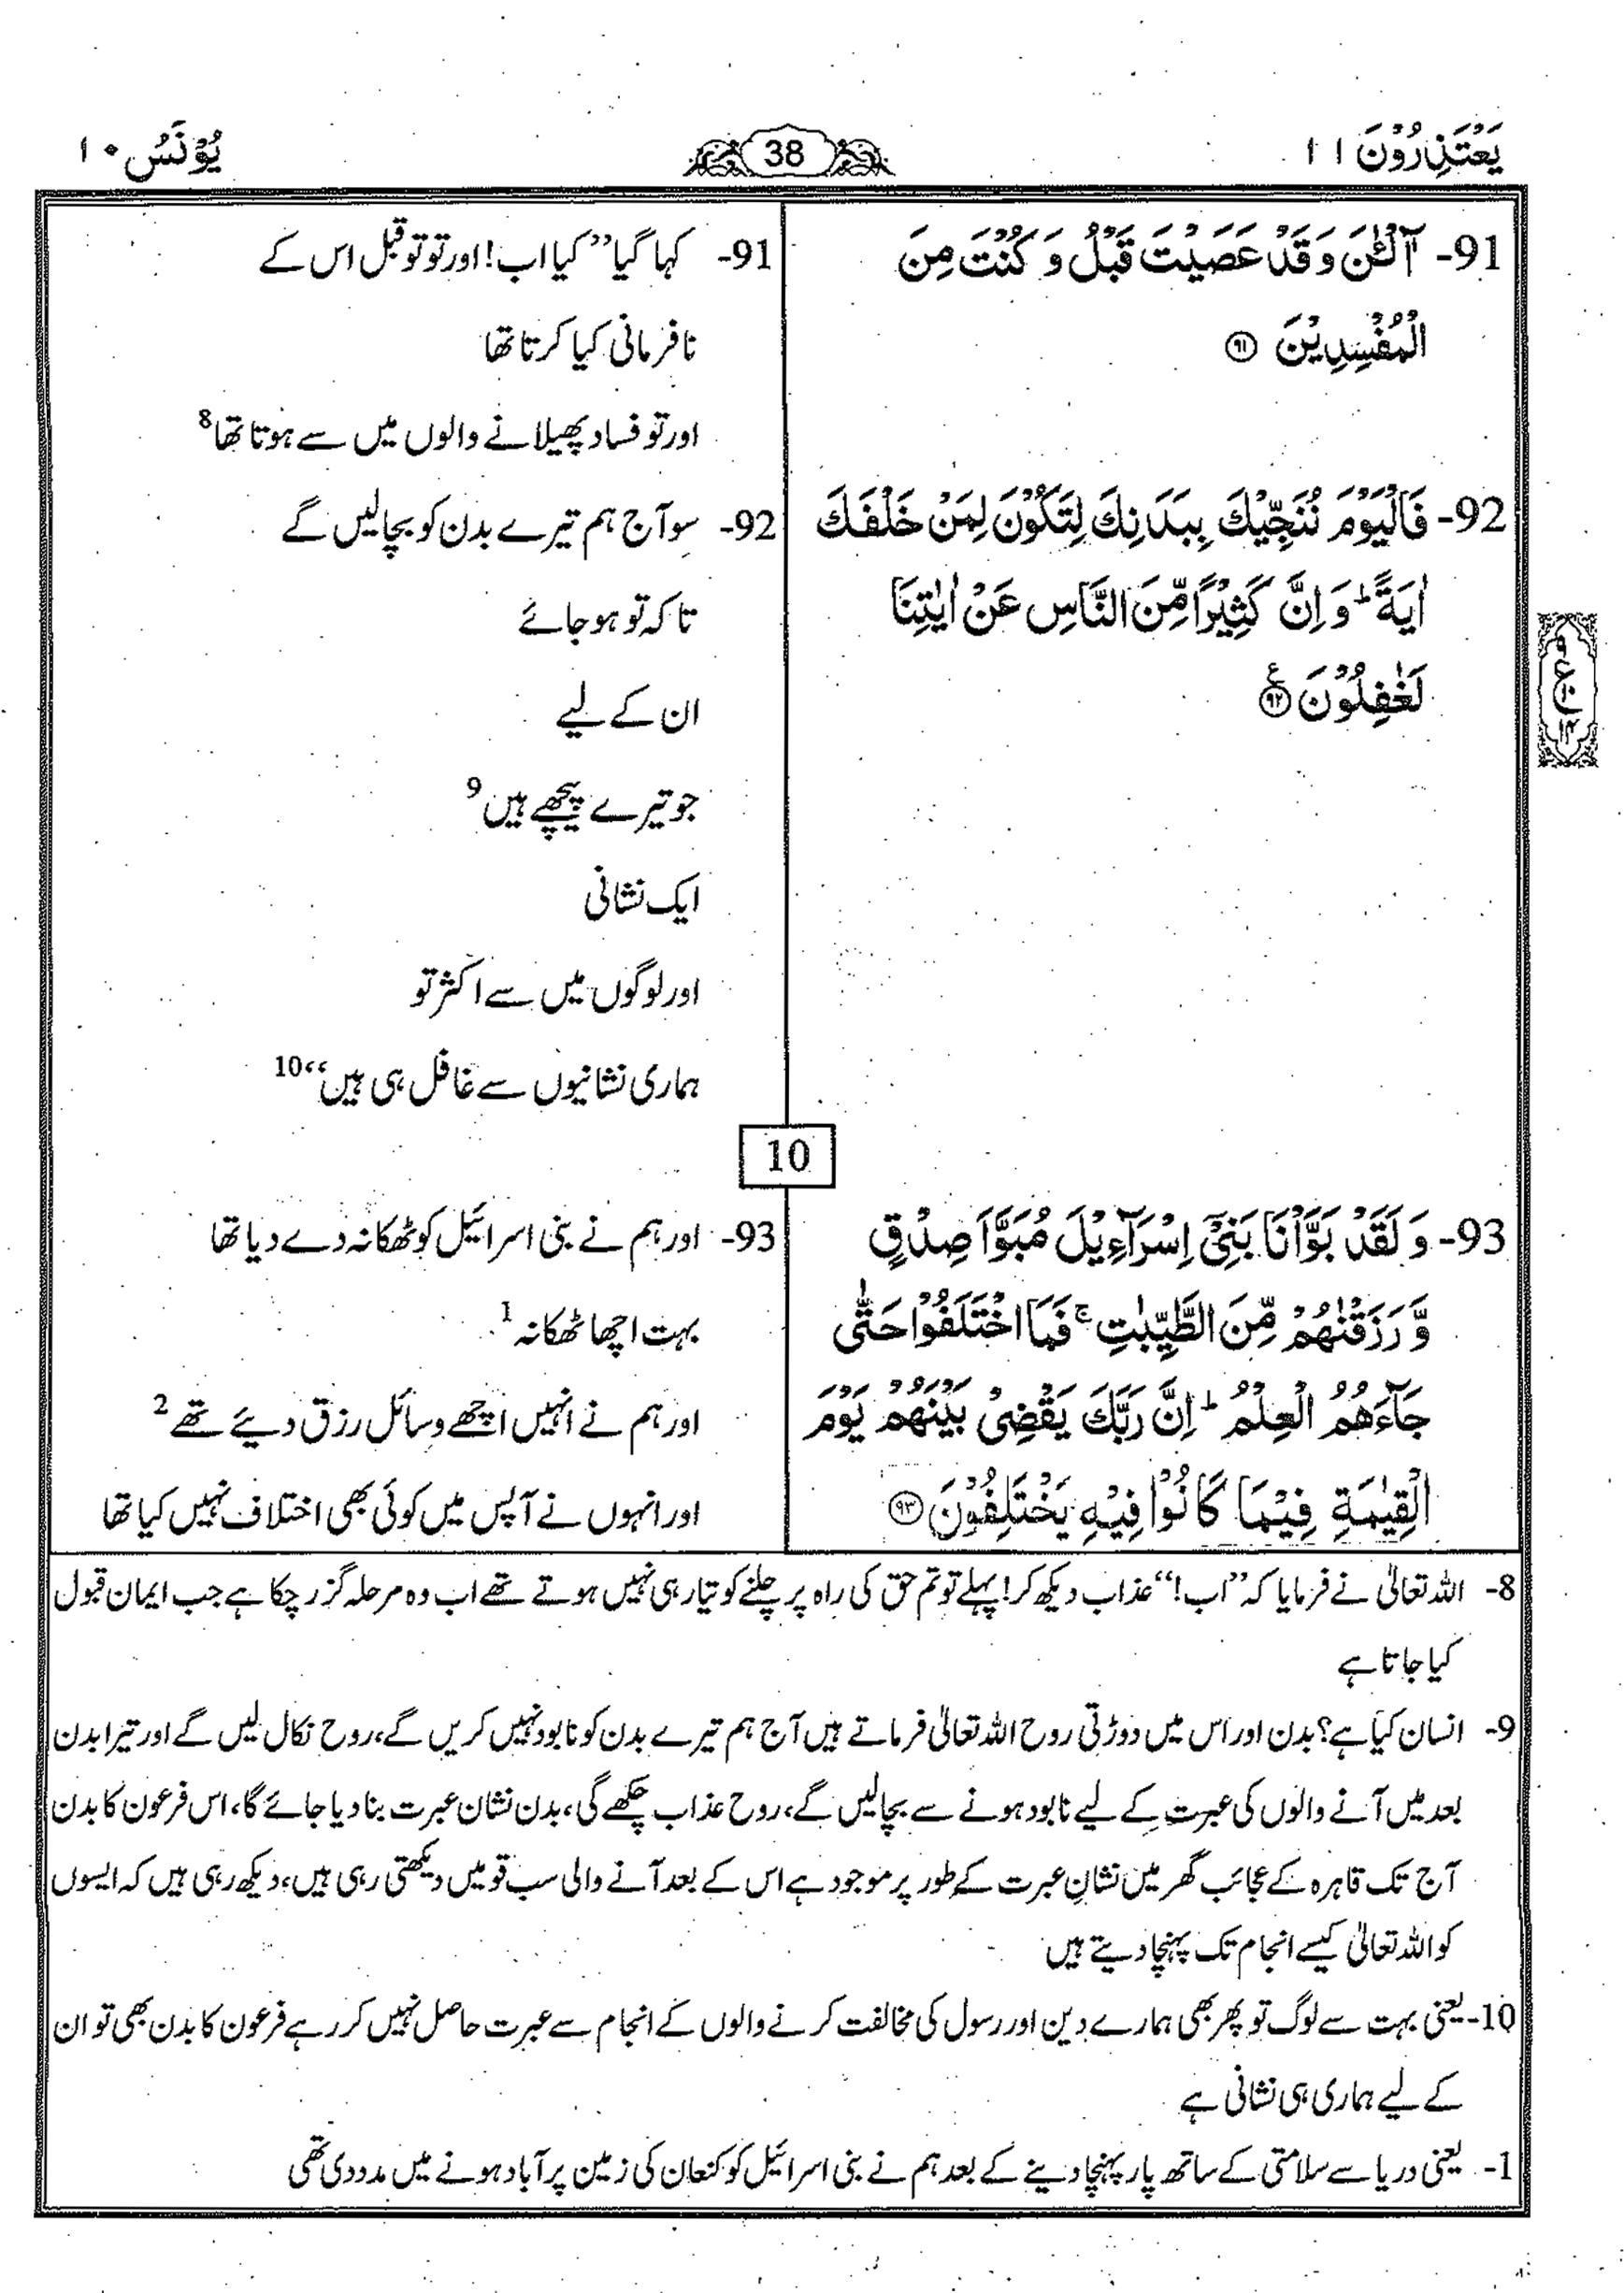 یَعْتَذِرُوْنَ ۱۱
38
یُوْنُس ۱۰
91- آٰلْـٰٔنَ وَ قَدْ عَصَیْتَ قَبْلُ وَ كُنْتَ مِنَ
الْمُفْسِدِیْنَ ﴿۹۱﴾
92- فَالْیَوْمَ نُنَجِّیْكَ بِبَدَنِكَ لِتَكُوْنَ لِمَنْ خَلْفَكَ
اٰیَةً ؕ وَ اِنَّ كَثِیْرًا مِّنَ النَّاسِ عَنْ اٰیٰتِنَا
لَغٰفِلُوْنَ ﴿۹۲﴾ ع
91- کہا گیا ’’کیا اب! اور تو تو قبل اس کے
نافرمانی کیا کرتا تھا
اور تو فساد پھیلانے والوں میں سے ہوتا تھا 8
92- سو آج ہم تیرے بدن کو بچا لیں گے
تاکہ تو ہو جائے
ان کے لیے
جو تیرے پیچھے ہیں 9
ایک نشانی
اور لوگوں میں سے اکثر تو
ہماری نشانیوں سے غافل ہی ہیں‘‘ 10
10
93- وَ لَقَدْ بَوَّاْنَا بَنِیْۤ اِسْرَآءِیْلَ مُبَوَّاَ صِدْقٍ
وَّ رَزَقْنٰهُمْ مِّنَ الطَّیِّبٰتِ ۚ فَمَا اخْتَلَفُوْا حَتّٰی
جَآءَهُمُ الْعِلْمُ ؕ اِنَّ رَبَّكَ یَقْضِیْ بَیْنَهُمْ یَوْمَ
الْقِیٰمَةِ فِیْمَا كَانُوْا فِیْهِ یَخْتَلِفُوْنَ ﴿۹۳﴾
93- اور ہم نے بنی اسرائیل کو ٹھکانہ دے دیا تھا
بہت اچھا ٹھکانہ 1
اور ہم نے انہیں اچھے وسائل رزق دیئے تھے 2
اور انہوں نے آپس میں کوئی بھی اختلاف نہیں کیا تھا
8- اللہ تعالیٰ نے فرمایا کہ ’’اب!‘‘ عذاب دیکھ کر! پہلے تو تم حق کی راہ پر چلنے کو تیار ہی نہیں ہوتے تھے اب وہ مرحلہ گزر چکا ہے جب ایمان قبول
کیا جاتا ہے
9- انسان کیا ہے؟ بدن اور اس میں دوڑتی روح اللہ تعالیٰ فرماتے ہیں آج ہم تیرے بدن کو نابود نہیں کریں گے، روح نکال لیں گے اور تیرا بدن
بعد میں آنے والوں کی عبرت کے لیے نابود ہونے سے بچا لیں گے، روح عذاب چکھے گی، بدن نشان عبرت بنا دیا جائے گا، اس فرعون کا بدن
آج تک قاہرہ کے عجائب گھر میں نشانِ عبرت کے طور پر موجود ہے اس کے بعد آنے والی سب قومیں دیکھتی رہی ہیں، دیکھ رہی ہیں کہ ایسوں
کو اللہ تعالیٰ کیسے انجام تک پہنچا دیتے ہیں
10- یعنی بہت سے لوگ تو پھر بھی ہمارے دین اور رسول کی مخالفت کرنے والوں کے انجام سے عبرت حاصل نہیں کر رہے فرعون کا بدن بھی تو ان
کے لیے ہماری ہی نشانی ہے
1- یعنی دریا سے سلامتی کے ساتھ پار پہنچا دینے کے بعد ہم نے بنی اسرائیل کو کنعان کی زمین پر آباد ہونے میں مدد دی تھی